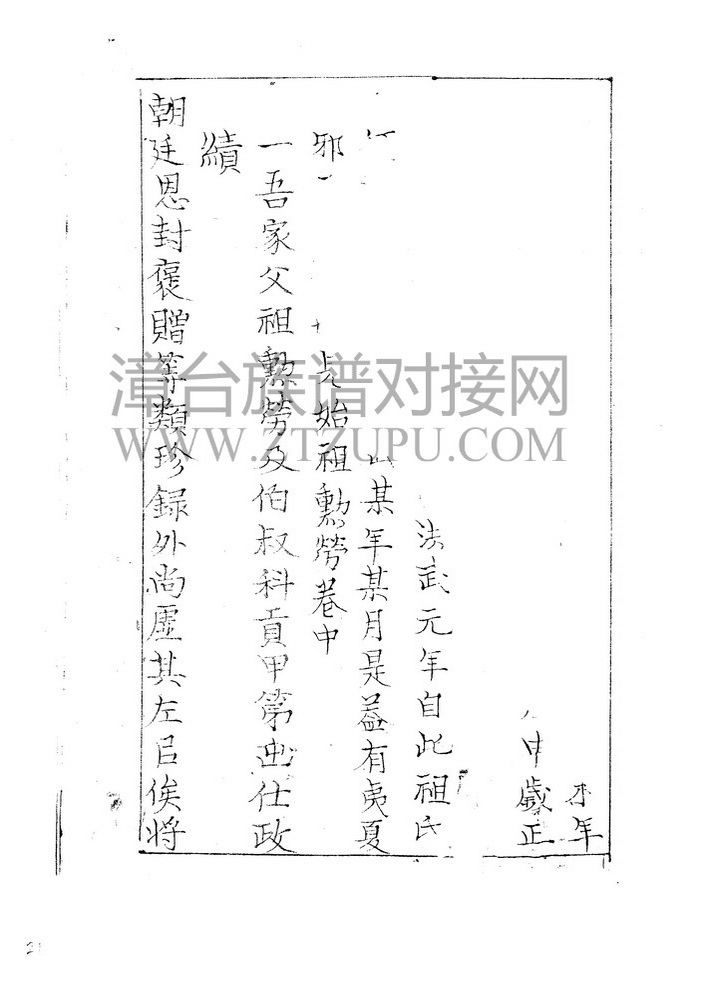 年
申歲正
武元年自此祖氏
某年某月是益有夷夏
邪
始祖勳勞卷中
一吾家父祖勲勞及伯叔科貢甲第出仕政
績
朝廷恩封褒贈等類珍録外尚虛其左㠯俟將
漳台族谱对接网
WWW.ZTZUPU.COM